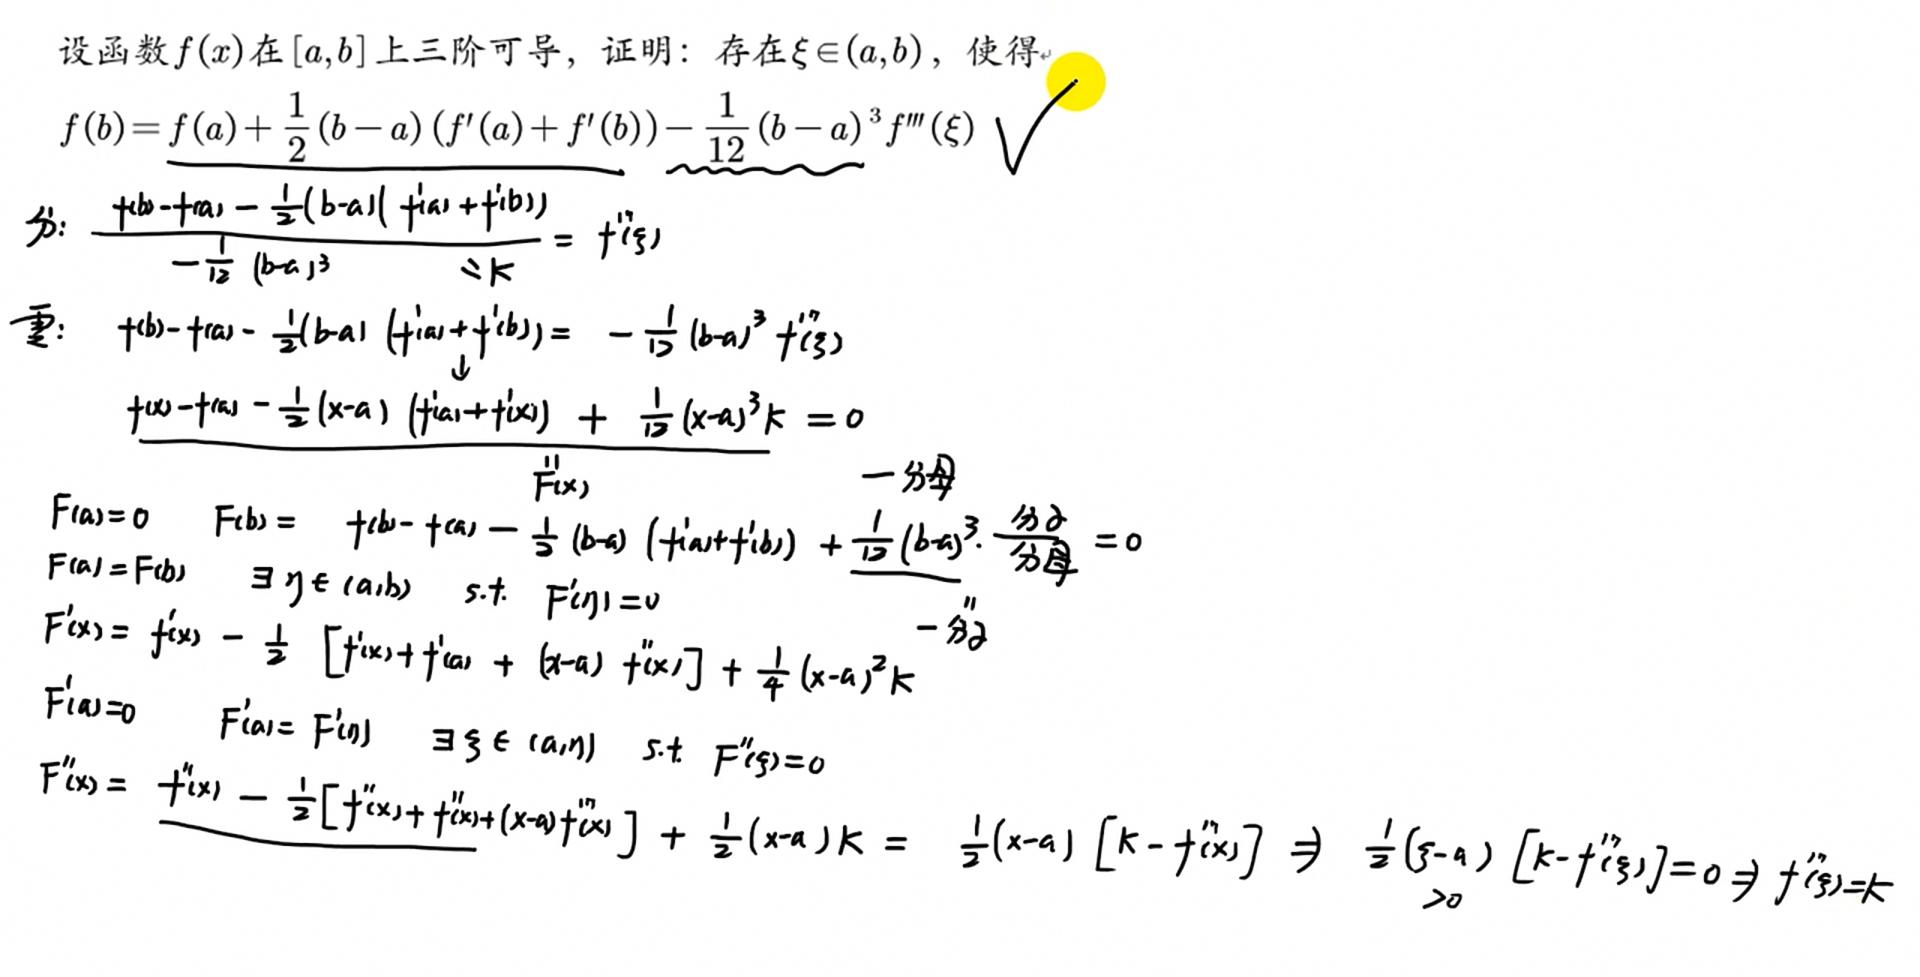 设函数f(x)在[a,b]上三阶可导，证明：存在ξ∈(a,b)，使得
f(b)=f(a)+\frac{1}{2}(b-a)(f'(a)+f'(b))-\frac{1}{12}(b-a)^3f'''(ξ) √
分: \frac{f(b)-f(a)-\frac{1}{2}(b-a)(f'(a)+f'(b))}{-\frac{1}{12}(b-a)^3} = f'''(ξ)
≐K
重: f(b)-f(a)-\frac{1}{2}(b-a)(f'(a)+f'(b))= -\frac{1}{12}(b-a)^3f'''(ξ)
↓
f(x)-f(a)-\frac{1}{2}(x-a)(f'(a)+f'(x)) + \frac{1}{12}(x-a)^3K=0
"
F(x)
-分母
F(a)=0 F(b)= f(b)-f(a)-\frac{1}{2}(b-a)(f'(a)+f'(b))+\frac{1}{12}(b-a)^3·\frac{分子}{分母}=0
"
-分子
F(a)=F(b) ∃η∈(a,b) s.t. F'(η)=0
F'(x)=f'(x)-\frac{1}{2}[f'(x)+f'(a)+(x-a)f''(x)]+\frac{1}{4}(x-a)^2K
F'(a)=0 F'(a)=F'(η) ∃ξ∈(a,η) s.t. F''(ξ)=0
F''(x)=f''(x)-\frac{1}{2}[f''(x)+f''(x)+(x-a)f'''(x)]+\frac{1}{2}(x-a)K=\frac{1}{2}(x-a)[K-f'''(x)]⇒\frac{1}{2}(ξ-a)[K-f'''(ξ)]=0⇒f'''(ξ)=K
>0